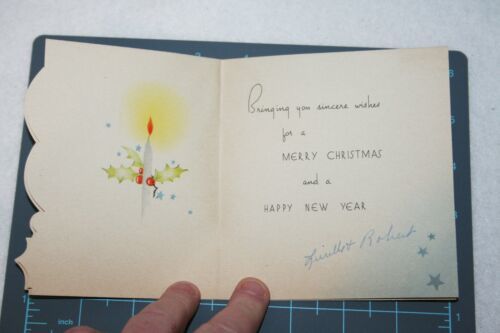 Bringing you sincere wishes
for a
MERRY CHRISTMAS
and a
HAPPY NEW YEAR
Robert
1
inch